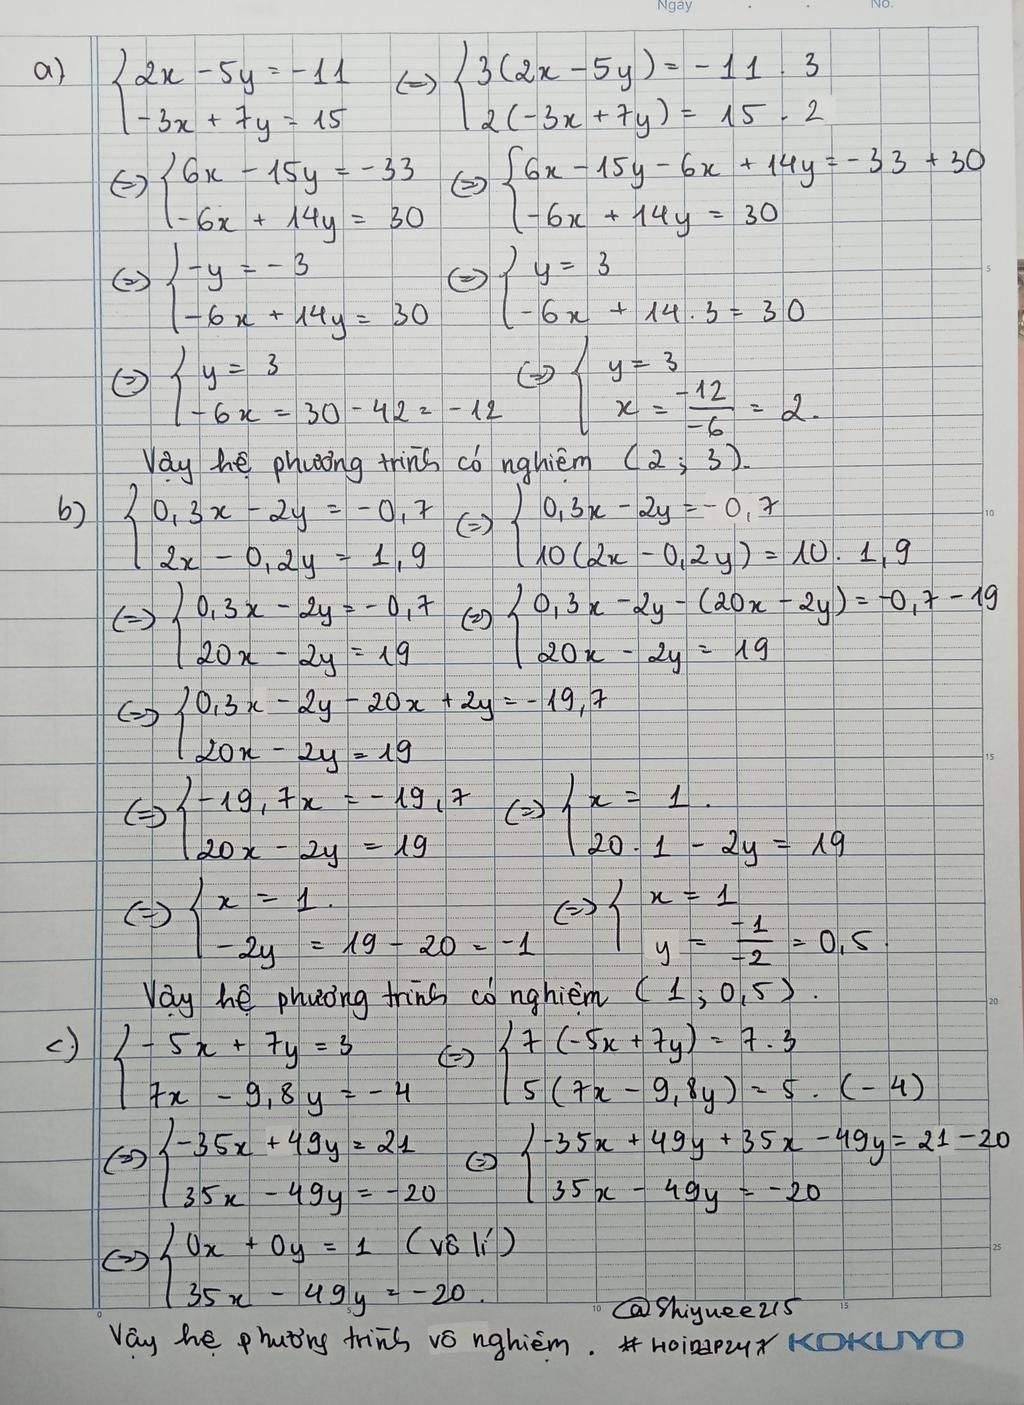 Ngày No.
a) { 2x - 5y = -11 (=) { 3(2x - 5y) = -11 . 3
-3x + 7y = 15 2(-3x + 7y) = 15 . 2
(=) { 6x - 15y = -33 (=) { 6x - 15y - 6x + 14y = -33 + 30
-6x + 14y = 30 -6x + 14y = 30
(=) { -y = -3 (=) { y = 3
-6x + 14y = 30 -6x + 14.3 = 30
(=) { y = 3 (=) { y = 3
-6x = 30 - 42 = -12 x = -12/-6 = 2.
Vậy hệ phương trình có nghiệm (2; 3).
b) { 0,3x - 2y = -0,7 (=) { 0,3x - 2y = -0,7
2x - 0,2y = 1,9 10(2x - 0,2y) = 10. 1,9
(=) { 0,3x - 2y = -0,7 (=) { 0,3x - 2y - (20x - 2y) = -0,7 - 19
20x - 2y = 19 20x - 2y = 19
(=) { 0,3x - 2y - 20x + 2y = -19,7
20x - 2y = 19
(=) { -19,7x = -19,7 (=) { x = 1.
20x - 2y = 19 20.1 - 2y = 19
(=) { x = 1. (=) { x = 1
-2y = 19 - 20 = -1 y = -1/-2 = 0,5
Vậy hệ phương trình có nghiệm (1; 0,5).
c) { -5x + 7y = 3 (=) { 7(-5x + 7y) = 7.3
7x - 9,8y = -4 5(7x - 9,8y) = 5. (-4)
(=) { -35x + 49y = 21 (=) { -35x + 49y + 35x - 49y = 21 - 20
35x - 49y = -20 35x - 49y = -20
(=) { 0x + 0y = 1 (vô lí)
35x - 49y = -20.
0 5 10 15 20 25
@Shiyuee215
Vậy hệ phương trình vô nghiệm. #HOIDAP247 KOKUYO